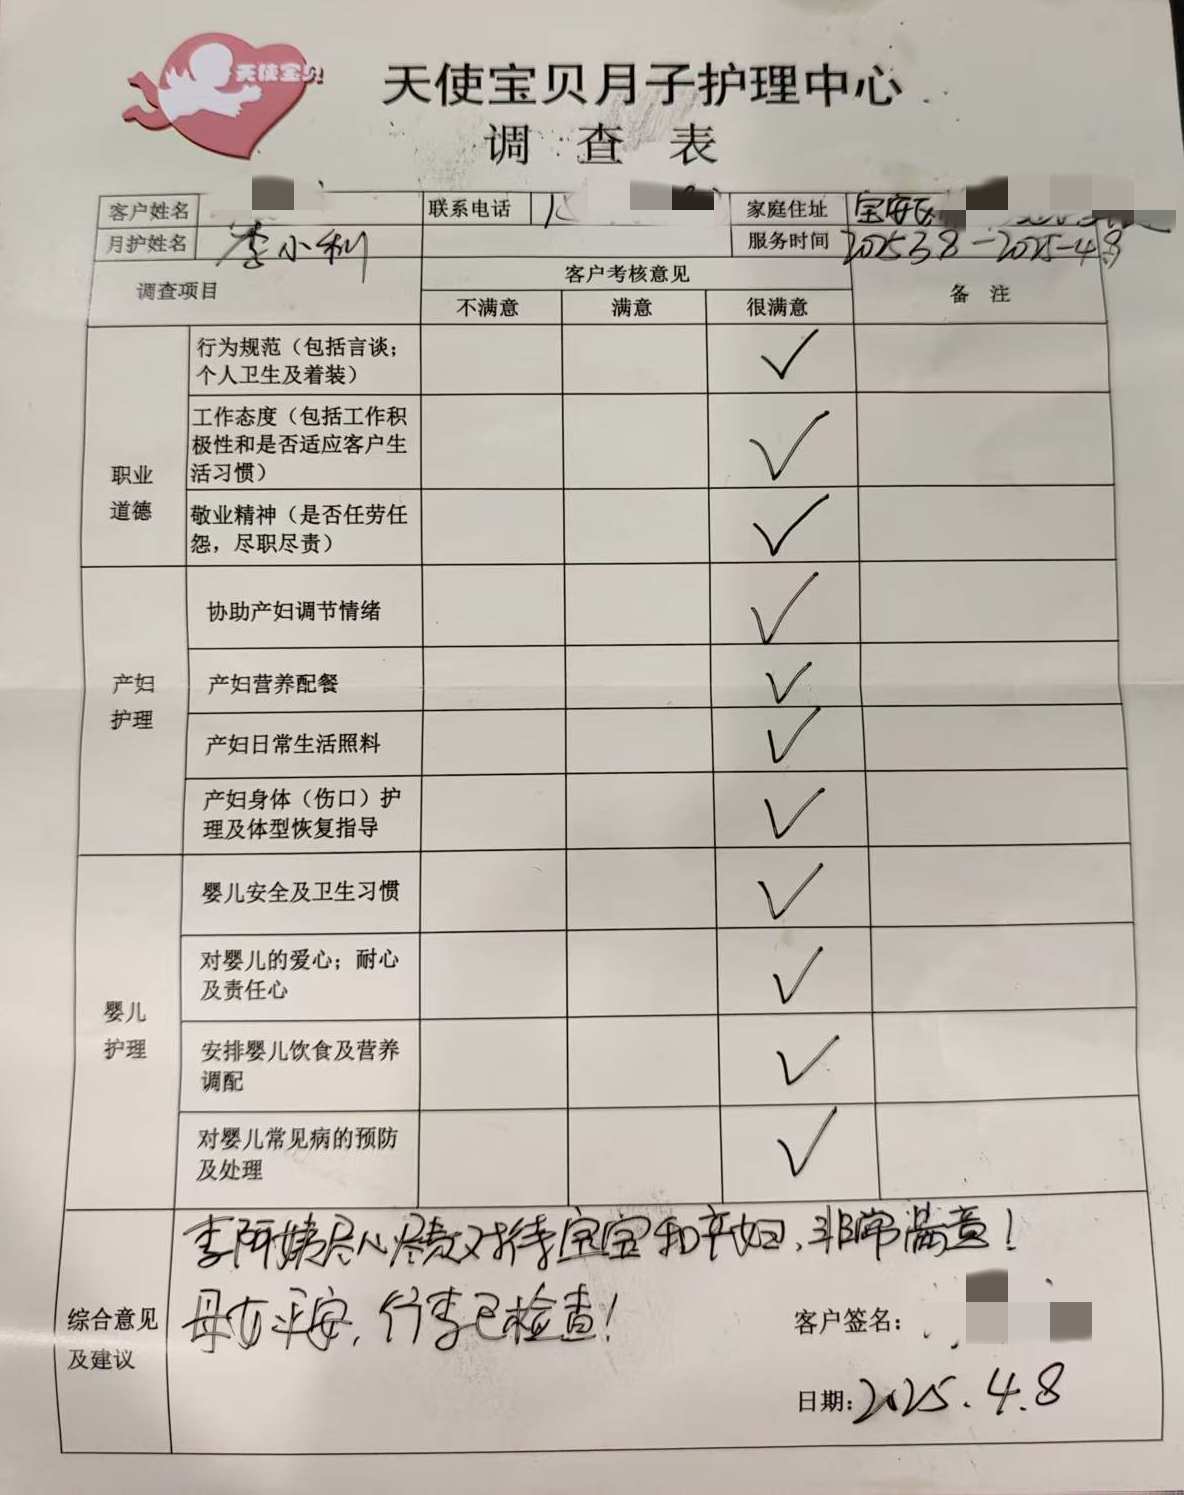 天使宝贝
天使宝贝月子护理中心
调 查 表
客户姓名 联系电话 家庭住址 宝安
月护姓名 李小利 服务时间 202538-2025-4.8
调查项目 客户考核意见 备 注
不满意 满意 很满意
职业
道德
行为规范（包括言谈；
个人卫生及着装）
工作态度（包括工作积
极性和是否适应客户生
活习惯）
敬业精神（是否任劳任
怨，尽职尽责）
产妇
护理
协助产妇调节情绪
产妇营养配餐
产妇日常生活照料
产妇身体（伤口）护
理及体型恢复指导
婴儿
护理
婴儿安全及卫生习惯
对婴儿的爱心；耐心
及责任心
安排婴儿饮食及营养
调配
对婴儿常见病的预防
及处理
综合意见
及建议
李阿姨尽心尽责对待宝宝和产妇、非常满意！
母女平安，行李已检查！
客户签名：
日期：2025.4.8